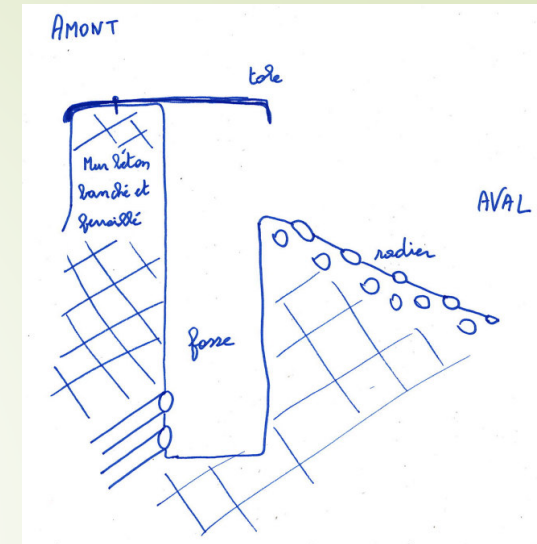 AMONT
tole
Mur béton
banché et
ferraillé
AVAL
radier
fosse